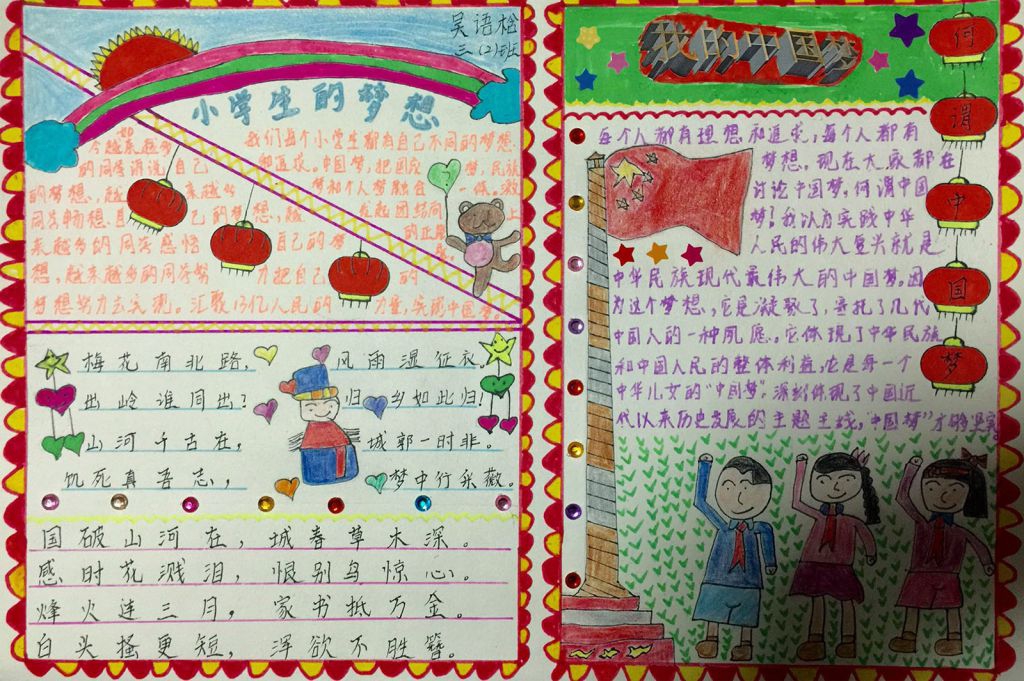 吴语桧
三(2)班
小学生的梦想
如今越来越多 我们每个小学生都有自己不同的梦想
的同学诉说自己 和追求。中国梦,把国家梦,民族
的梦想,越来越多 梦和个人梦融合一体。激
同学畅想自己的梦想,越 发起团结向上
来越多的同学感悟自己的梦 的正
想,越来越多的同学努力把自己的
梦想努力去实现。汇聚13亿人民的力量,实现中国梦。
梅花南北路, 风雨湿征衣。
出岭谁同出? 归乡如此归!
山河千古在, 城郭一时非。
饥死真吾志, 梦中行采薇。
国破山河在,城春草木深。
感时花溅泪,恨别鸟惊心。
烽火连三月,家书抵万金。
白头搔更短,浑欲不胜簪。
我的中国梦
何谓中国梦
每个人都有理想和追求,每个人都有
梦想。现在大家都在
讨论中国梦。何谓中国
梦?我以为实践中华
人民的伟大复兴就是
中华民族现代最伟大的中国梦。因
为这个梦想,它是凝聚了,寄托了几代
中国人的一种夙愿。它体现了中华民族
和中国人民的整体利益,它是每一个
中华儿女的“中国梦”。深刻体现了中国近
代以来历史发展的主题主线,“中国梦”才够坚实